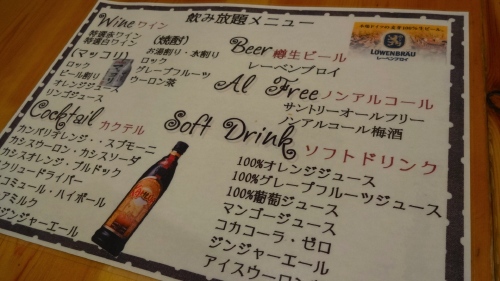 飲み放題メニュー
Wine ワイン
特選赤ワイン
特選白ワイン
(マッコリ)
ロック
ビール割り
オレンジジュ
リンゴジュース
(焼酎)
お湯割り・水割り
ロック
グレープフルーツ
ウーロン茶
Cocktail カクテル
カンパリオレンジ・スプモーニ
カシスウーロン・カシスソーダ
カシスオレンジ・ブルドック
クリュードライバー
ゴミュール・ハイボール
アミルク
ジンジャーエール
Beer 樽生ビール
レーベンブロイ
Al Free ノンアルコール
サントリーオールフリー
ノンアルコール梅酒
Soft Drink ソフトドリンク
100%オレンジジュース
100%グレープフルーツジュース
100%葡萄ジュース
マンゴージュース
コカコーラ・ゼロ
ジンジャーエール
アイスウーロン
LÖWENBRÄU
レーベンブロイ